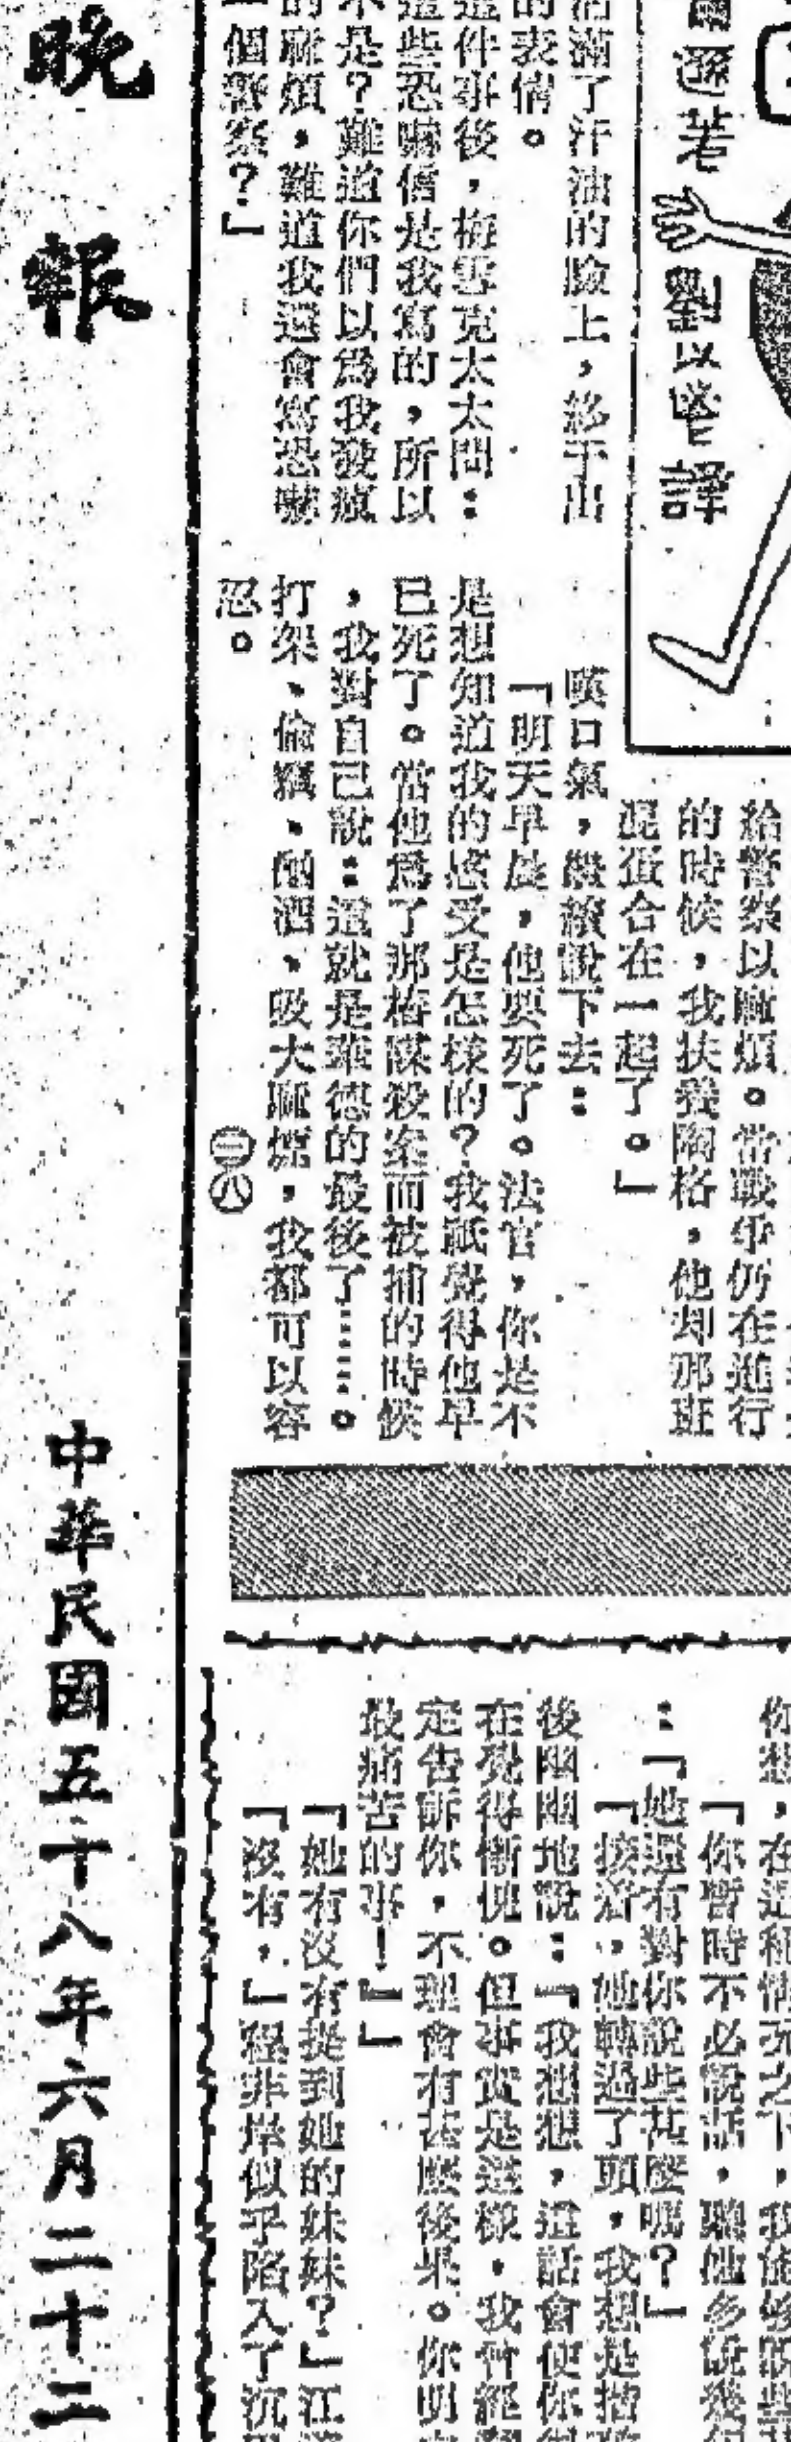 爾遜若
劉以鬯譯
沾滿了汗油的臉上,終于出
的表情。
這件事後,梅雪克太太問:
這些恐嚇信是我寫的,所以
不是?難道你們以為我發瘋
的麻煩,難道我還會寫恐嚇
一個警察?」
給警察以麻煩。當戰爭仍在進行
的時候,我扶養陶格,他却那班
混蛋合在一起了。」
嘆口氣,繼續說下去:
「明天早晨,他要死了。法官,你是不
是想知道我的感受是怎樣的?我祇覺得他早
已死了。當他為了那樁謀殺案而被捕的時候
,我對自己說:這就是華德的最後了……。
打架、偷竊、酗酒、吸大麻煙,我都可以容
忍。
三八
你想,在這種情況之下,我能够說些甚
「你暫時不必說話,聽她多說幾句
:「她還有對你說些甚麼嗎?」
「接着,她轉過了頭,我想是
後幽幽地說:『我想想,這話會使你
在覺得慚愧。但事實是這樣,我曾經
定告訴你,不理會有甚麼後果。你明
最痛苦的事!』」
「她有沒有提到她的妹妹?」江
「沒有,」程非岸似乎陷入了沉
晚報
中華民國五十八年六月二十二